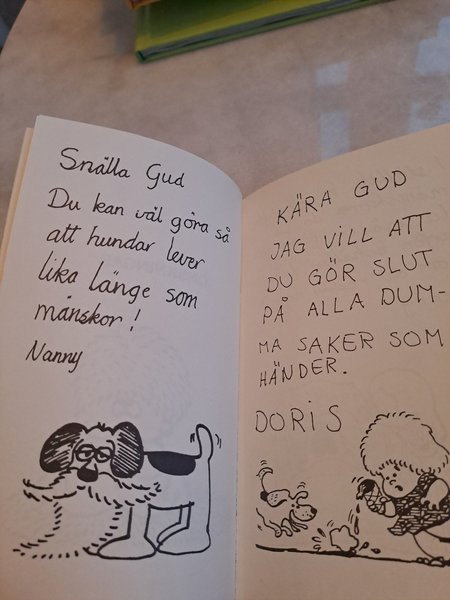 Snälla Gud
Du kan väl göra så
att hundar lever
lika länge som
mänskor!
Nanny
KÄRA GUD
JAG VILL ATT
DU GÖR SLUT
PÅ ALLA DUM-
MA SAKER SOM
HÄNDER.
DORIS